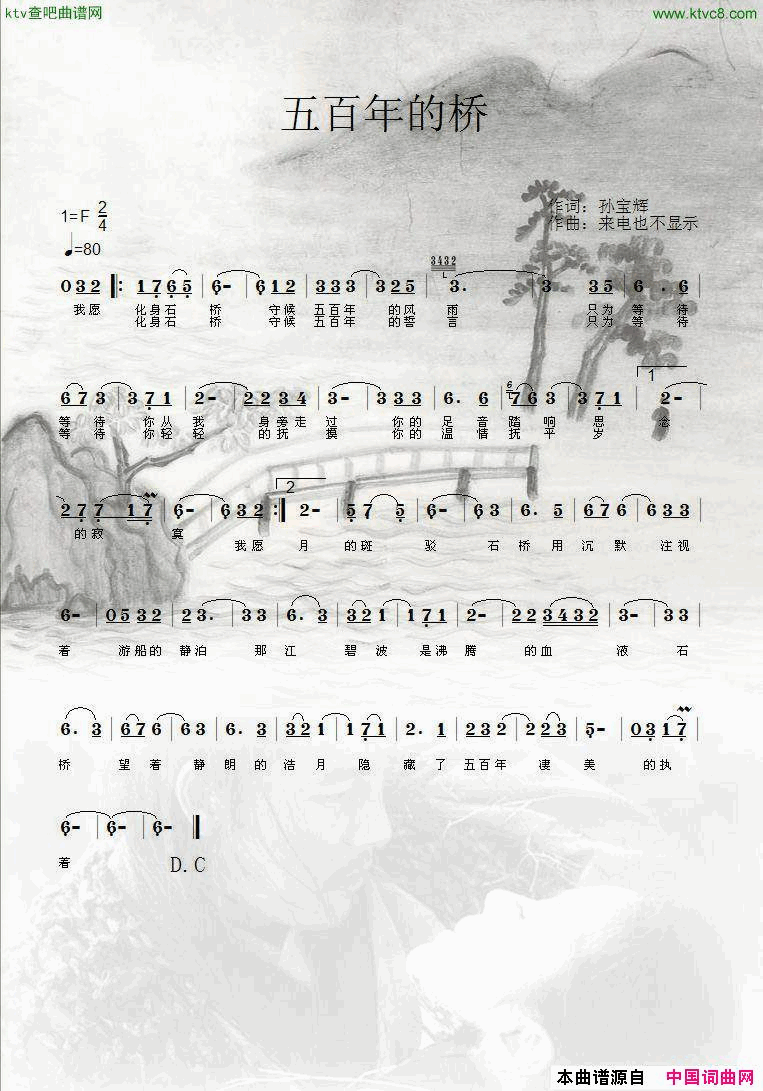 ktv查吧曲谱网
www.ktvc8.com
五百年的桥
1=F 2/4
作词：孙宝辉
作曲：来电也不显示
♩=80
3432
032 |: 1765 | 6- | 612 | 333 | 325 | 3. | 3 35 | 6 .6 |
我愿 化身石 桥 守候 五百年 的风 雨 只为 等 待
化身石 桥 守候 五百年 的誓 言 只为 等 待
1
6
673 | 371 | 2- | 2234 | 3- | 333 | 6. 6 | 763 | 371 | 2- |
等 待 你从 我 身旁走 过 你的 足 音 踏 响 思 念
等 待 你轻 轻 的抚 摸 你的 温 情 抚 平 岁
2
277 17 | 6- | 632 :| 2- | 57 5 | 6- | 63 | 6. 5 | 676 | 633 |
的寂 寞 我愿 月 的斑 驳 石 桥 用 沉 默 注 视
6- | 0532 | 23. | 33 | 6. 3 | 321 | 171 | 2- | 22 3432 | 3 3 |
着 游船的 静泊 那 江 碧 波 是 沸 腾 的 血 液 石
6. 3 | 676 | 63 | 6. 3 | 32 1 | 171 | 2. 1 | 232 | 223 | 5- | 03 17 |
桥 望 着 静 朗 的 洁 月 隐 藏 了 五百年 凄 美 的 执
6- | 6- | 6- ‖
着 D.C
本曲谱源自 中国词曲网